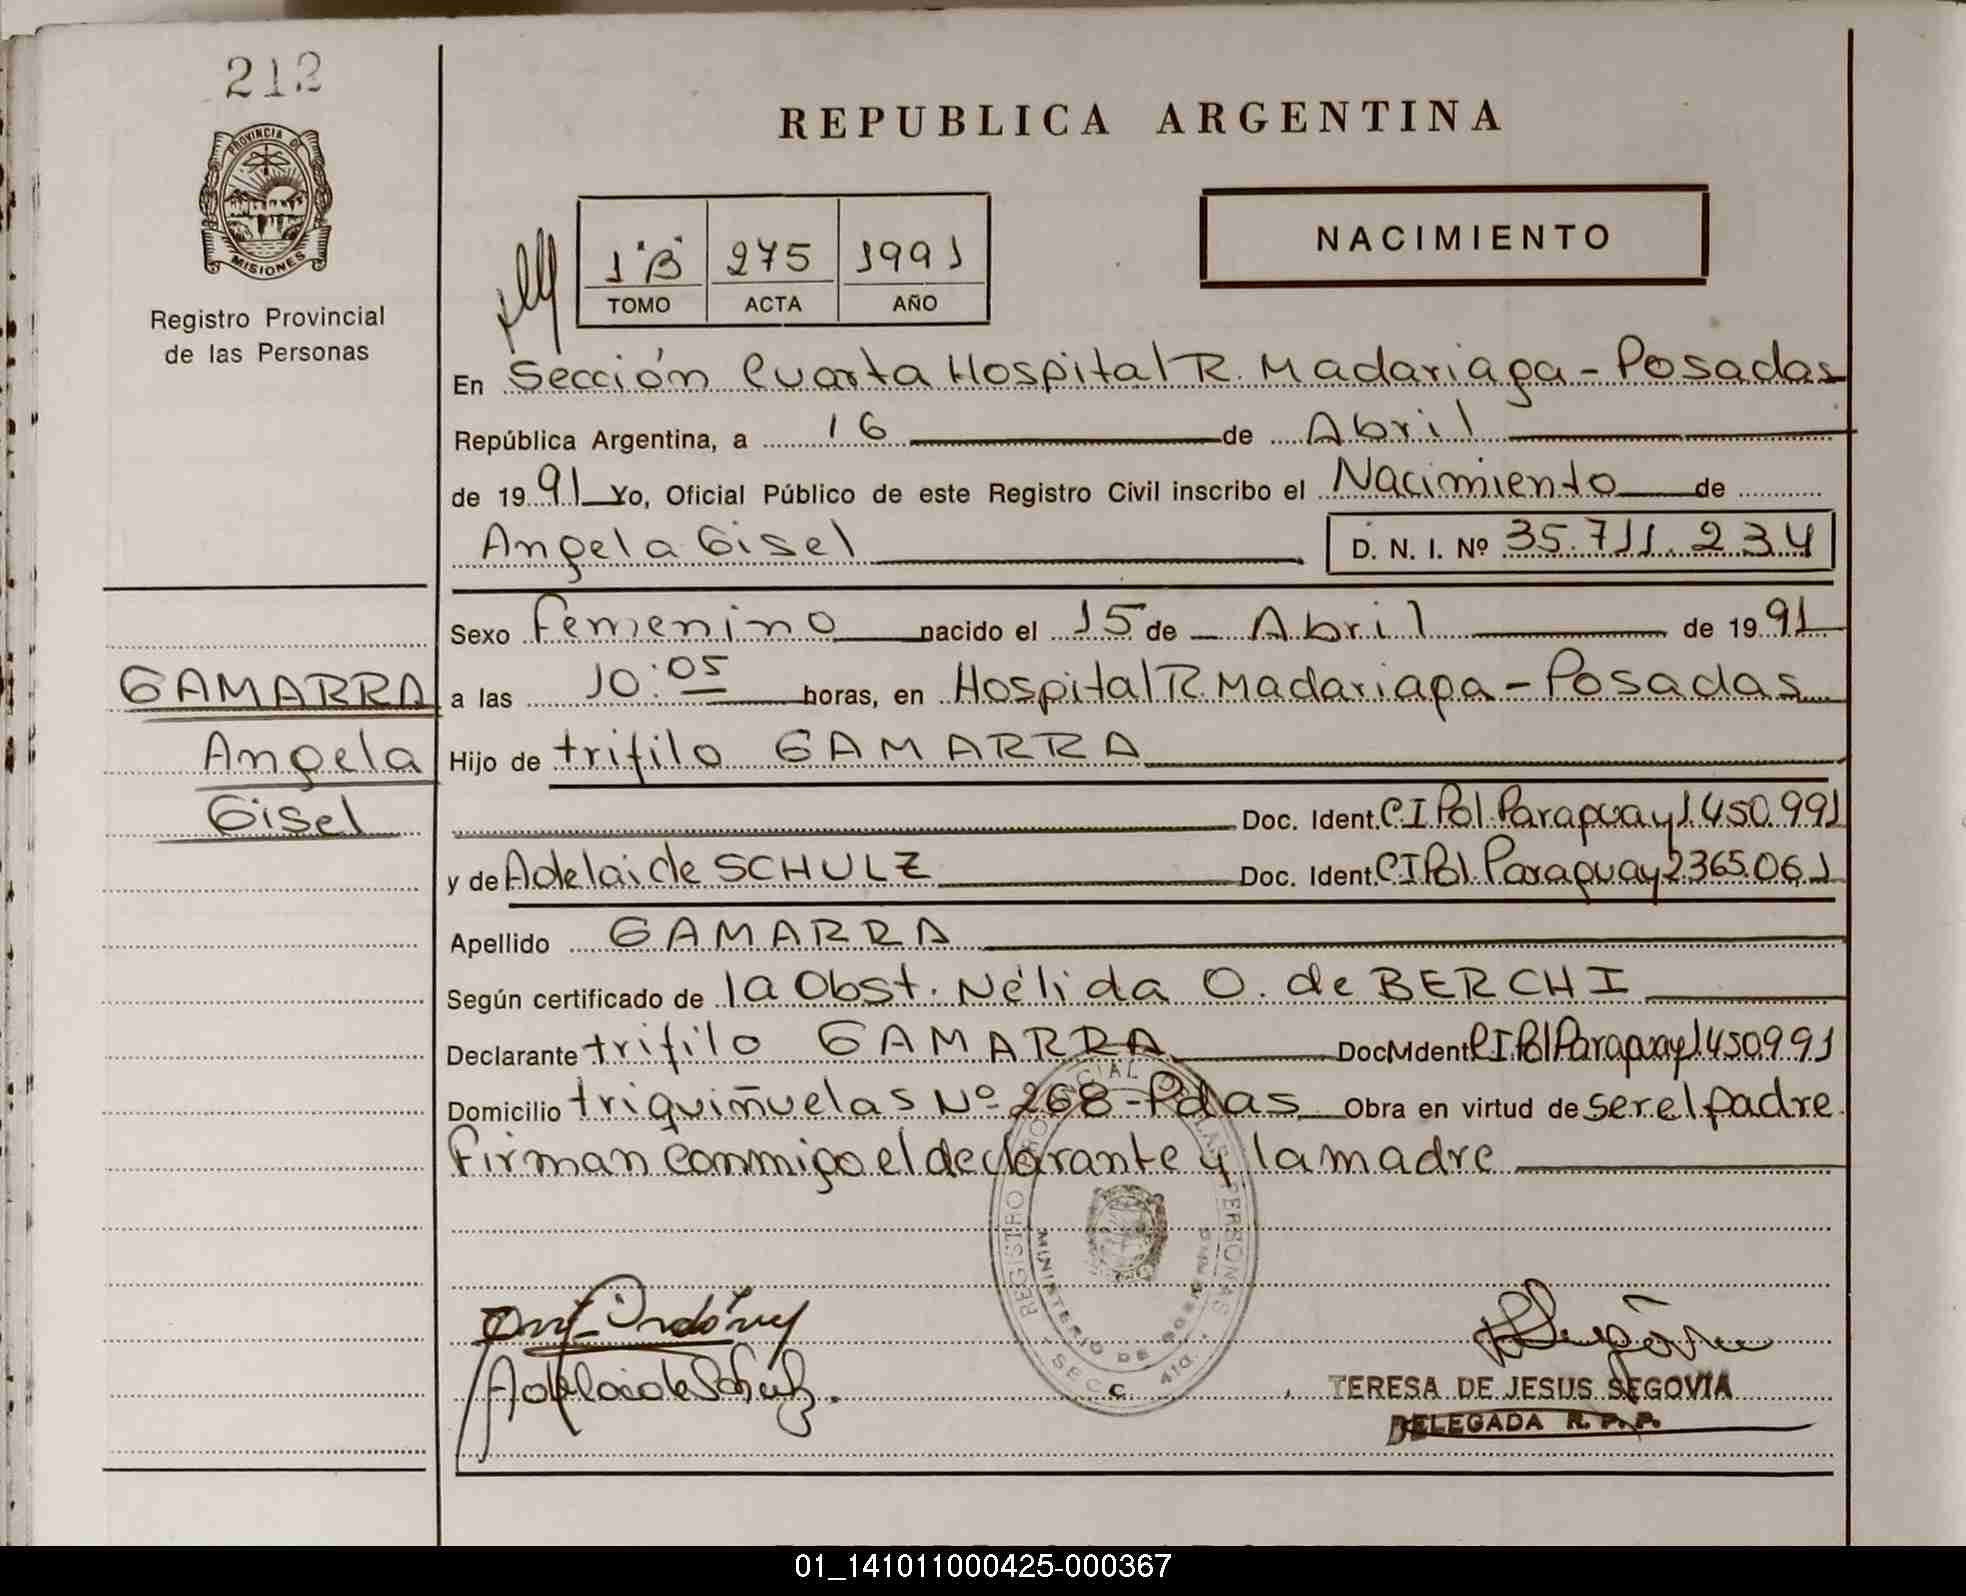 212
PROVINCIA DE
MISIONES
Registro Provincial
de las Personas
REPUBLICA ARGENTINA
NACIMIENTO
1"B" 275 1991
TOMO ACTA AÑO
En Sección Cuarta Hospital R. Madariaga - Posadas
República Argentina, a 16 de Abril
de 1991 Yo, Oficial Público de este Registro Civil inscribo el Nacimiento de
Angela Gisel D. N. I. Nº 35.711.234
Sexo Femenino nacido el 15 de Abril de 1991
GAMARRA
Angela
Gisel
a las 10:05 horas, en Hospital R. Madariaga - Posadas
Hijo de trifilo GAMARRA
Doc. Ident. C I Pol. Paraguay 1.450.991
y de Adelaide SCHULZ Doc. Ident. C I Pol. Paraguay 2.365.061
Apellido GAMARRA
Según certificado de la Obst. Nélida O. de BERCHI
Declarante trifilo GAMARRA Doc. Ident. C I. Pol Paraguay 1.450.991
Domicilio triquiñuelas Nº 268 - Pdas Obra en virtud de ser el padre
Firman conmigo el declarante y la madre
REGISTRO PROVINCIAL DE LAS PERSONAS
MINISTERIO DE GOBIERNO
SECC. 4ta.
Adelaide Schulz.
TERESA DE JESUS SEGOVIA
DELEGADA R. P. P.
01_141011000425-000367